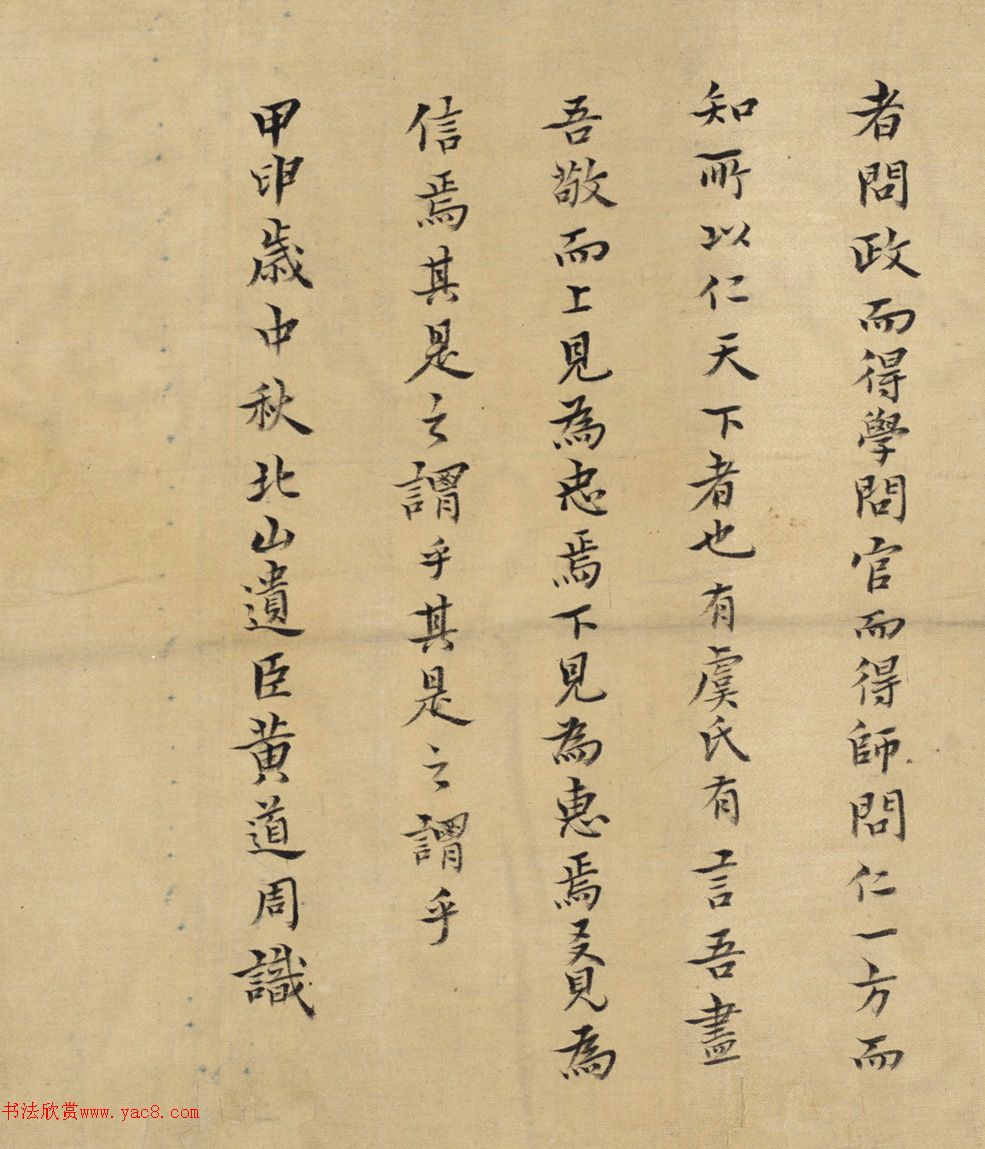 者問政而得學問官而得師問仁一方而
知所以仁天下者也有虞氏有言吾盡
吾敬而上見為忠焉下見為惠焉交見為
信焉其是之謂乎其是之謂乎
甲申歲中秋北山遺臣黃道周識
书法欣赏www.yac8.com